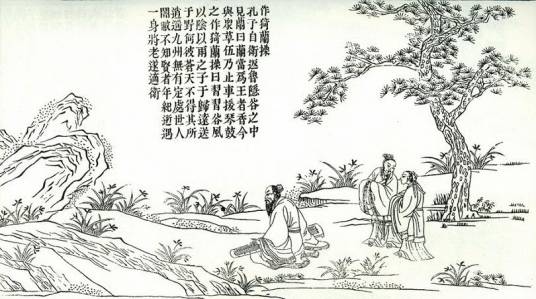 作猗蘭操
孔子自衛返魯隱谷之中
見蘭曰蘭當爲王者香今
與衆草伍乃止車援琴鼓
之作猗蘭操曰習習谷風
以陰以雨之子于歸遠送
于野何彼蒼天不得其所
逍遙九州無有定處世人
闇蔽不知賢者年紀逝邁
一身將老遂適衛